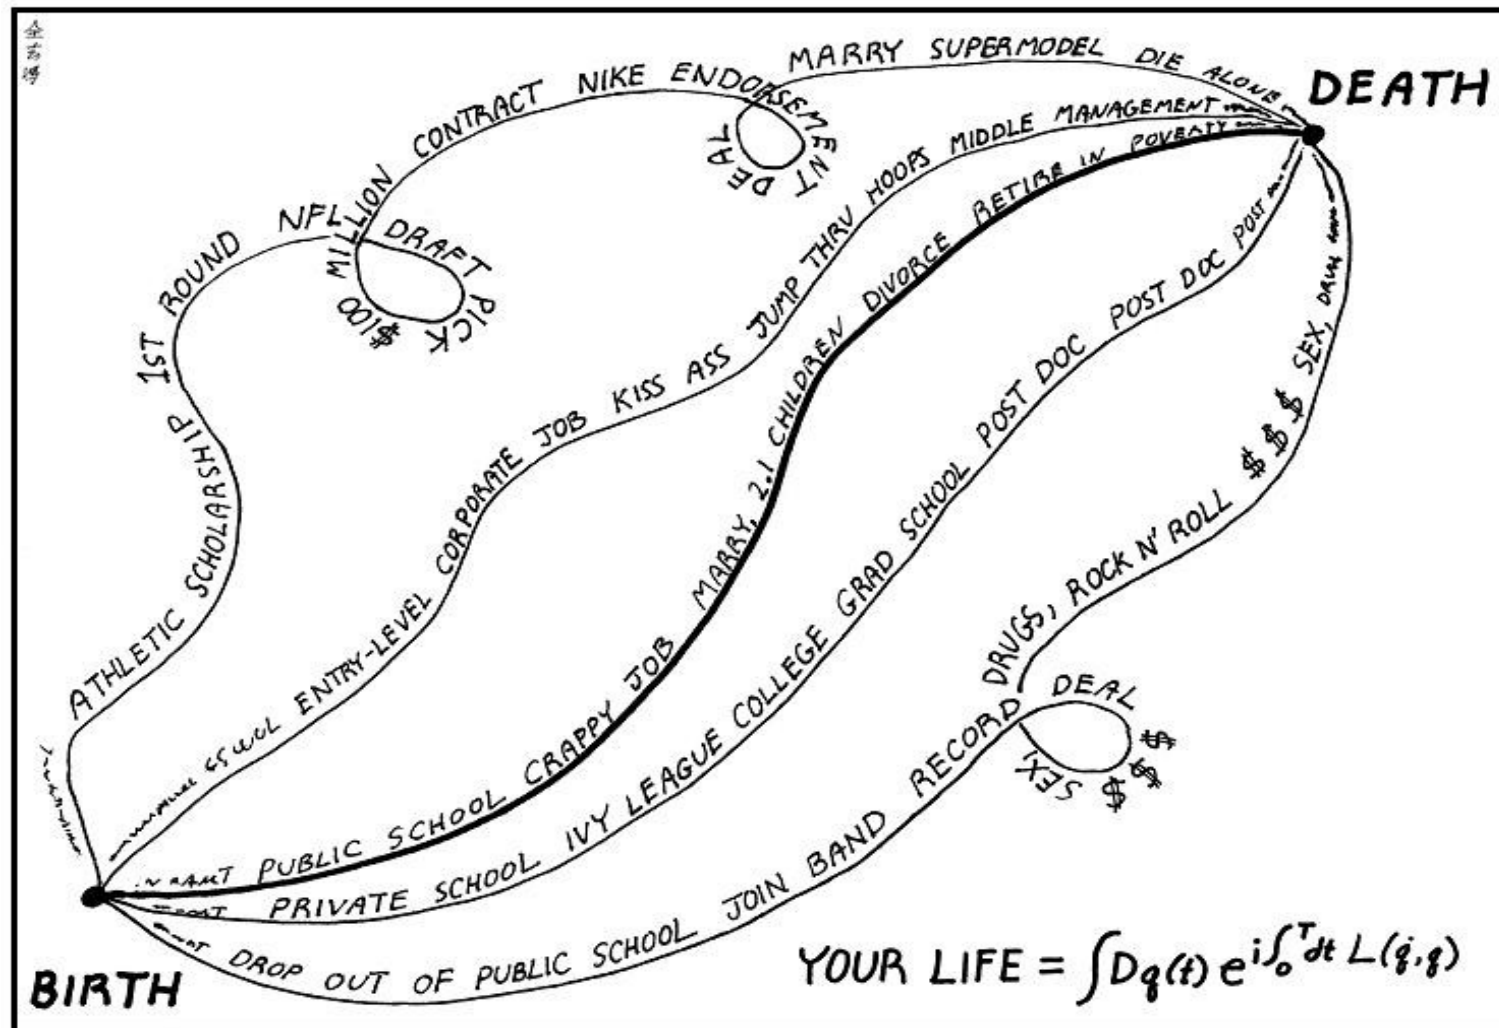 DEATH
MARRY SUPERMODEL DIE ALONE
ATHLETIC SCHOLARSHIP 1ST ROUND NFL DRAFT PICK $100 MILLION CONTRACT NIKE ENDORSEMENT DEAL
ENTRY-LEVEL CORPORATE JOB KISS ASS JUMP THRU HOOPS MIDDLE MANAGEMENT
PUBLIC SCHOOL CRAPPY JOB MARRY, 2.1 CHILDREN DIVORCE RETIRE IN POVERTY
PRIVATE SCHOOL IVY LEAGUE COLLEGE GRAD SCHOOL POST DOC POST DOC POST
DROP OUT OF PUBLIC SCHOOL JOIN BAND RECORD DEAL $ $ $ SEX, DRUGS, ROCK N' ROLL $ $ $ SEX, DRUG
BIRTH
YOUR LIFE = ∫Dq(t) e^{i∫₀ᵀ dt L(q̇,q)}